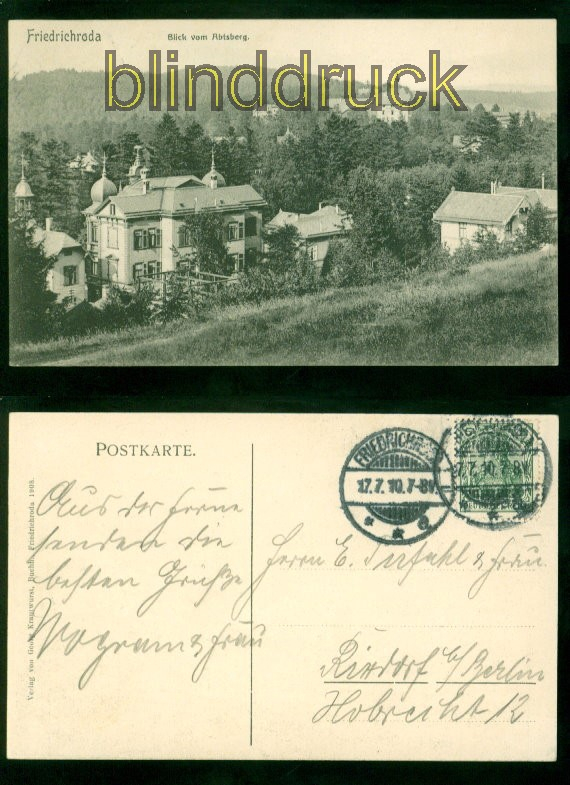 Friedrichroda Blick vom Abtsberg.
blinddruck
POSTKARTE.
FRIEDRICHRODA
17.7.10.7-8V
17.7.10.7-8V
Aus der Ferne
senden die
besten Grüße
Wogram & Frau
Herrn E. & Frau
Rixdorf b/Berlin
Hobrecht 12
Verlag von Friedrichroda 1908.